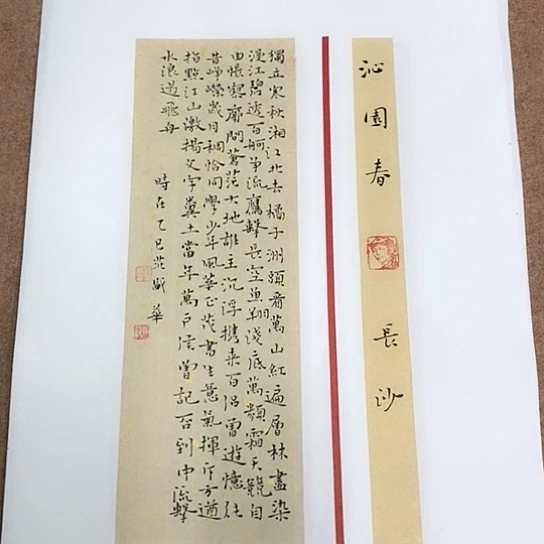 沁園春 長沙
獨立寒秋湘江北去橘子洲頭看萬山紅遍層林盡染
漫江碧透百舸爭流鷹擊長空魚翔淺底萬類霜天競自
由悵寥廓問蒼茫大地誰主沉浮攜來百侶曾遊憶往
昔崢嶸歲月稠恰同學少年風華正茂書生意氣揮斥方遒
指點江山激揚文字糞土當年萬戶侯曾記否到中流擊
水浪遏飛舟
時在乙巳 華